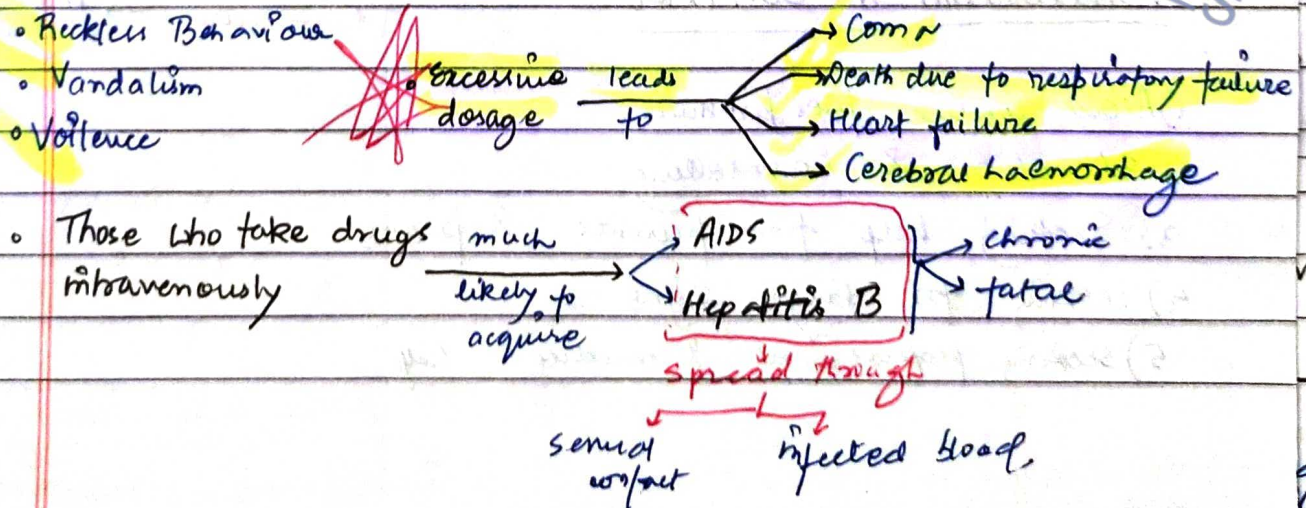 • Reckless Behaviour
• Vandalism
• Voilence
• Excessive leads
dosage to
Coma
Death due to respiratory failure
Heart failure
Cerebral haemorrhage
• Those who take drugs
intravenously
much
likely to
acquire
AIDS
Hepatitis B
chronic
fatal
spread through
sexual
contact
infected blood.